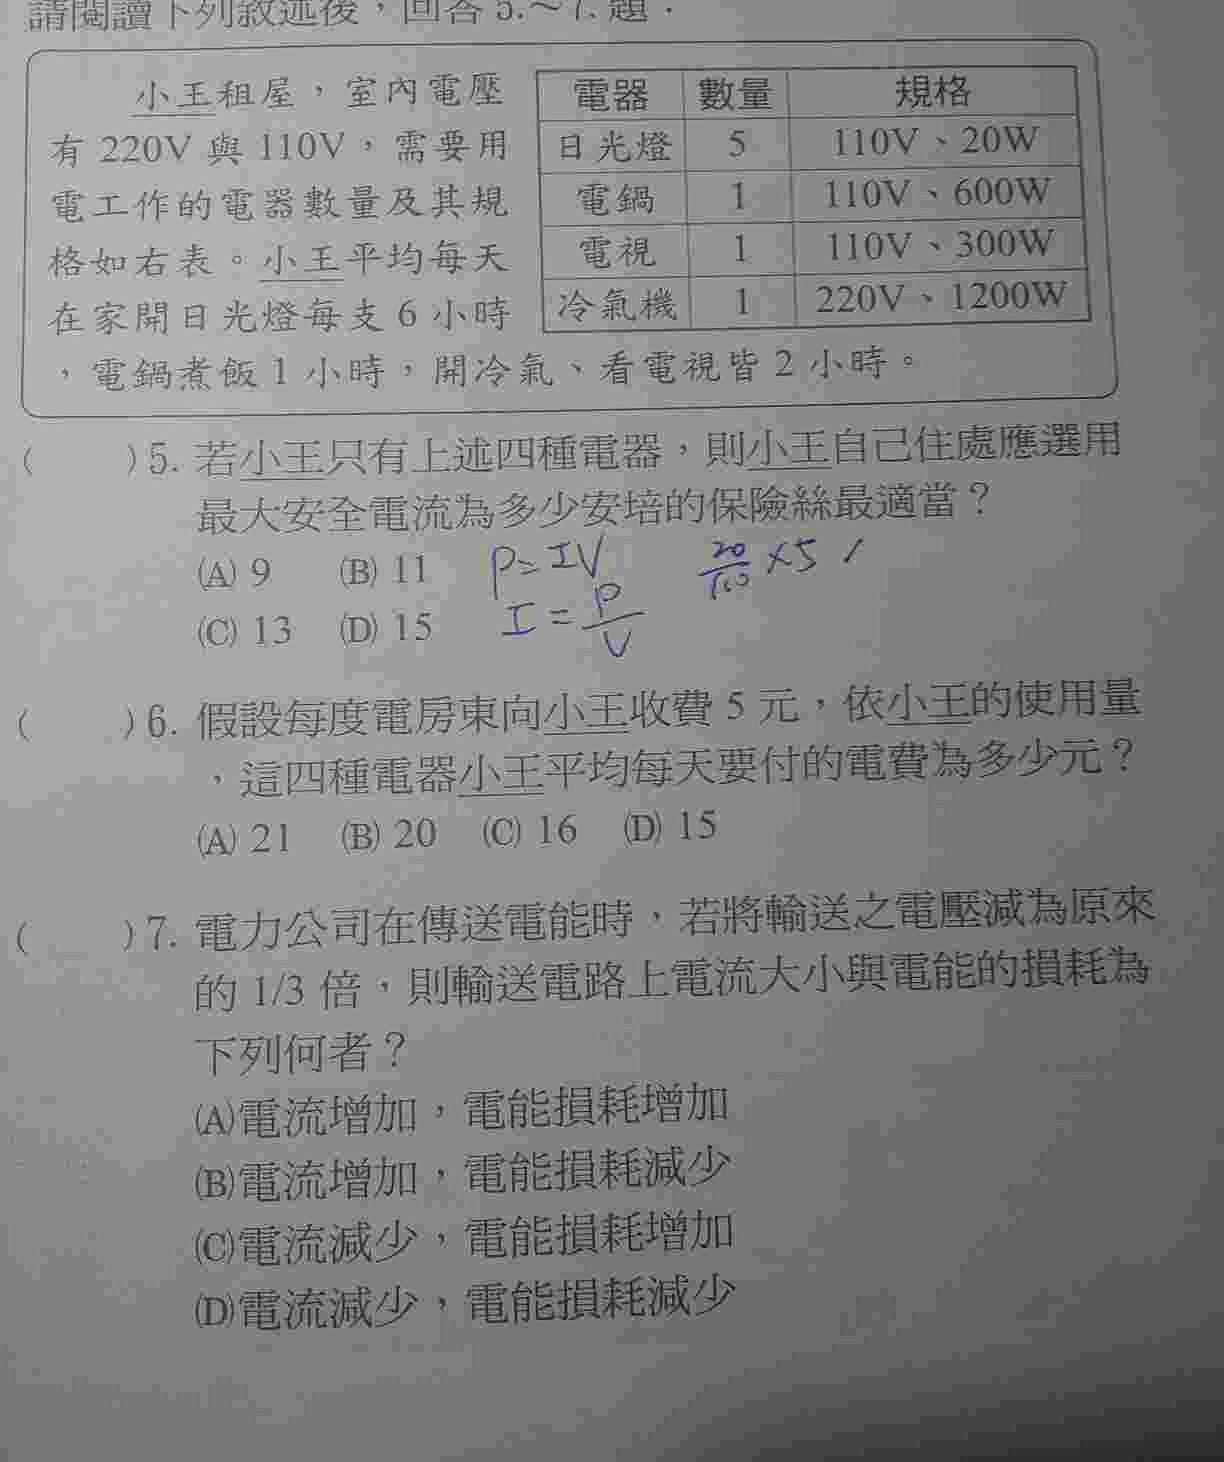 請閱讀下列敘述後，回答5.～7.題：
小王租屋，室內電壓
有220V與110V，需要用
電工作的電器數量及其規
格如右表。小王平均每天
在家開日光燈每支6小時
，電鍋煮飯1小時，開冷氣、看電視皆2小時。
電器 數量 規格
日光燈 5 110V、20W
電鍋 1 110V、600W
電視 1 110V、300W
冷氣機 1 220V、1200W
(　　)5. 若小王只有上述四種電器，則小王自己住處應選用
最大安全電流為多少安培的保險絲最適當？
(A) 9 (B) 11
(C) 13 (D) 15
P=IV
I=P/V
20/110×5
(　　)6. 假設每度電房東向小王收費5元，依小王的使用量
，這四種電器小王平均每天要付的電費為多少元？
(A) 21 (B) 20 (C) 16 (D) 15
(　　)7. 電力公司在傳送電能時，若將輸送之電壓減為原來
的1/3倍，則輸送電路上電流大小與電能的損耗為
下列何者？
(A)電流增加，電能損耗增加
(B)電流增加，電能損耗減少
(C)電流減少，電能損耗增加
(D)電流減少，電能損耗減少